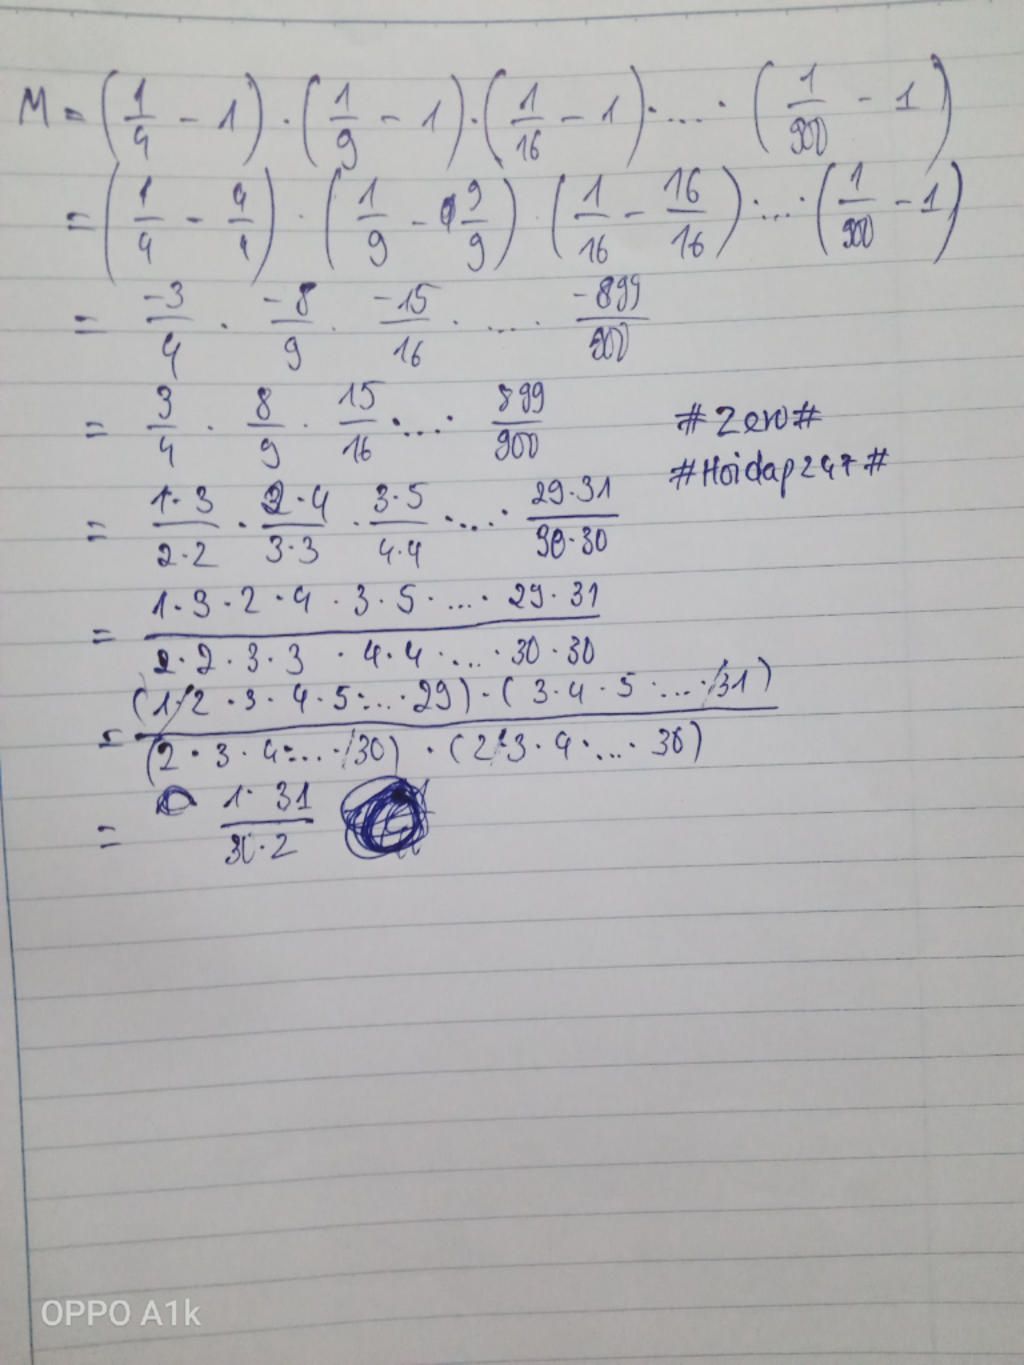 M = (1/4 - 1) · (1/9 - 1) · (1/16 - 1) · ... · (1/900 - 1)
= (1/4 - 4/4) · (1/9 - 9/9) · (1/16 - 16/16) · ... · (1/900 - 1)
= -3/4 · -8/9 · -15/16 · ... · -899/900
= 3/4 · 8/9 · 15/16 · ... · 899/900
#Zero#
#Hoidap247#
= 1·3/2·2 · 2·4/3·3 · 3·5/4·4 · ... · 29·31/30·30
= 1·3·2·4·3·5· ... ·29·31/2·2·3·3·4·4· ... ·30·30
= (1·2·3·4·5· ... ·29) · (3·4·5· ... ·31)/(2·3·4· ... ·30) · (2·3·4· ... ·30)
= 1·31/30·2
OPPO A1k